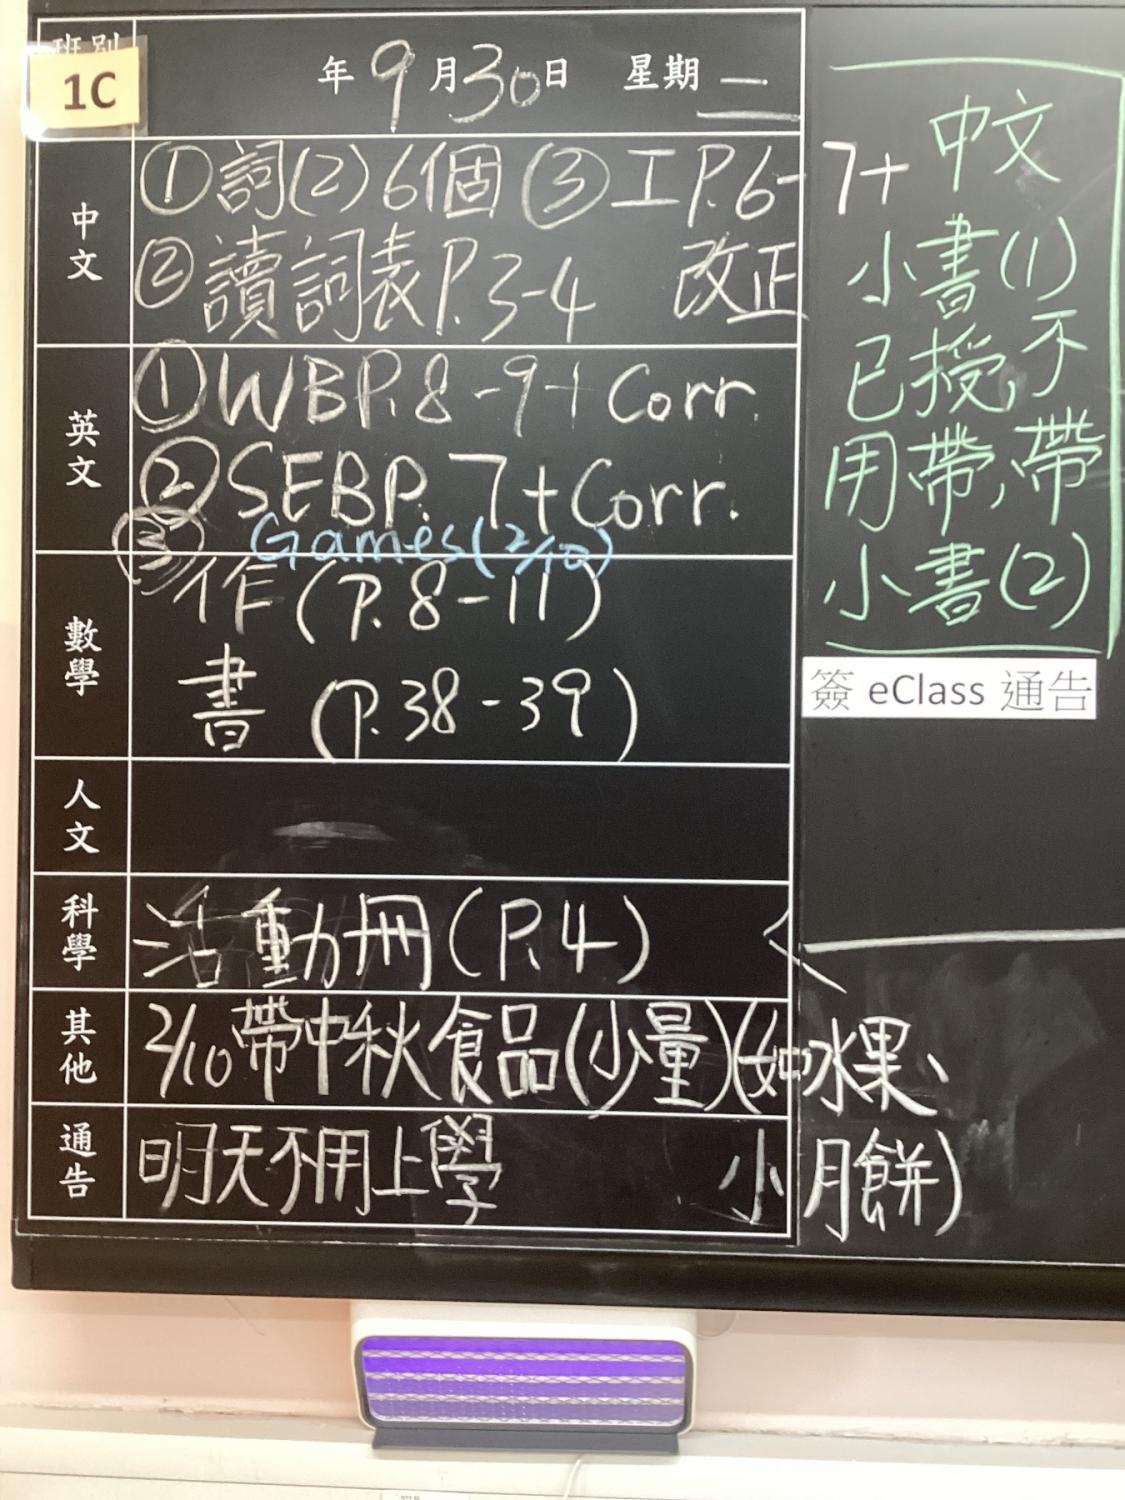 班別
1C
年9月30日 星期二
中文
①詞(2)6個 ③工P.6-7+
②讀詞表P.3-4 改正
英文
①WBP.8-9+Corr.
②SEBP.7+Corr.
③Games(2/10)
數學
作(P.8-11)
書(P.38-39)
人文
科學
活動冊(P.4)
其他
2/10帶中秋食品(少量)(如水果、
小月餅)
通告
明天不用上學
中文
小書(1)
已授,不
用帶,帶
小書(2)
簽 eClass 通告